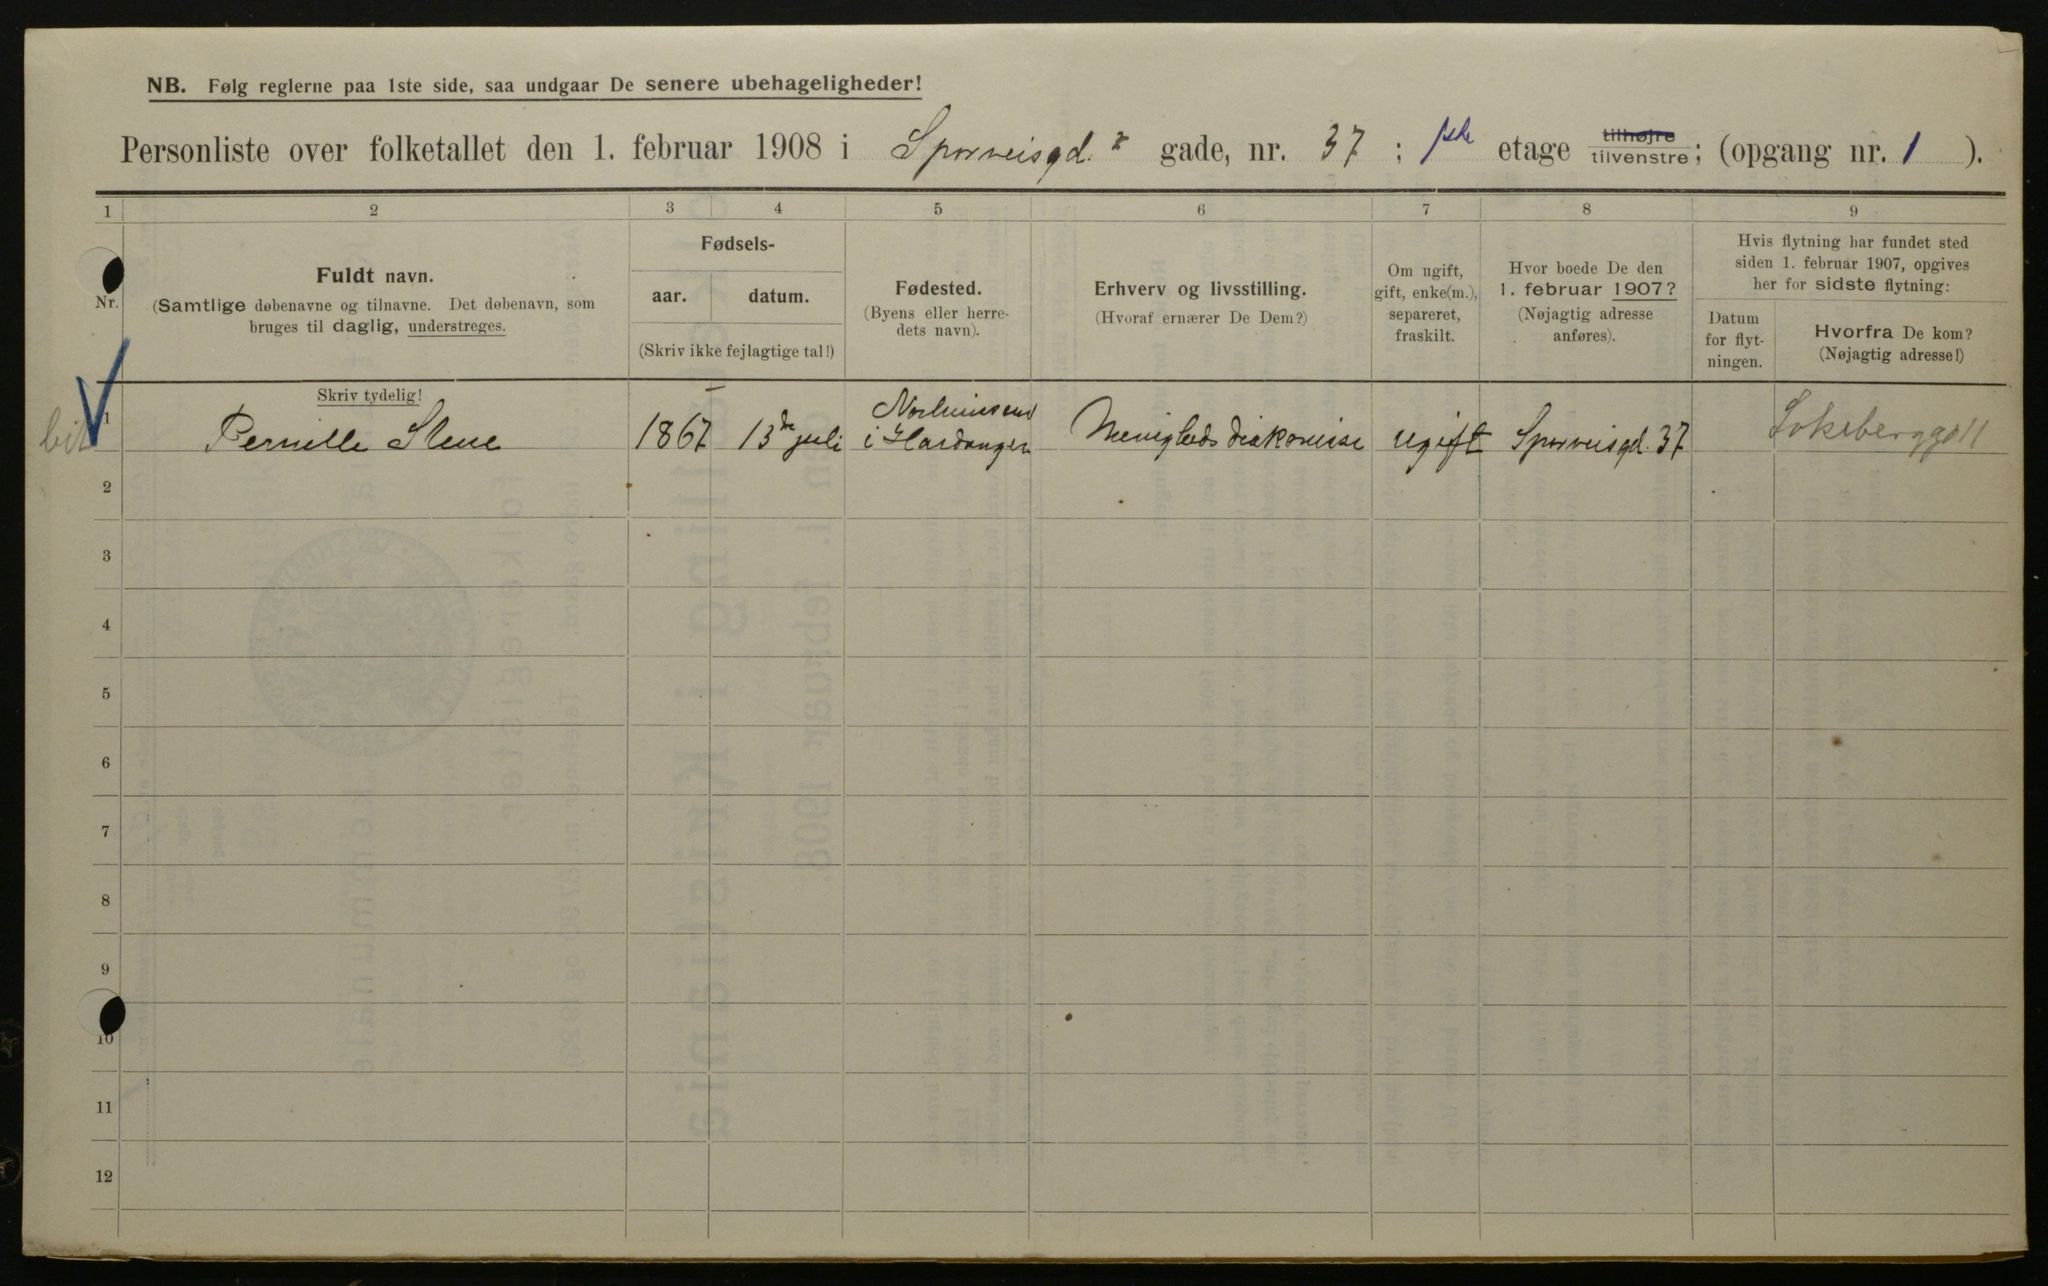 NB. Følg reglerne paa 1ste side, saa undgaar De senere ubehageligheder!
Personliste over folketallet den 1. februar 1908 i Sporveisgd. gade, nr. 37; 1ste etage tilhøjre tilvenstre; (opgang nr. 1).
1 2 3 4 5 6 7 8 9
Nr.
Fuldt navn.
(Samtlige døbenavne og tilnavne. Det døbenavn, som
bruges til daglig, understreges.
Skriv tydelig!
Fødsels-
aar. datum.
(Skriv ikke fejlagtige tal!)
Fødested.
(Byens eller herre-
dets navn).
Erhverv og livsstilling.
(Hvoraf ernærer De Dem?)
Om ugift,
gift, enke(m.),
separeret,
fraskilt.
Hvor boede De den
1. februar 1907?
(Nøjagtig adresse
anføres).
Hvis flytning har fundet sted
siden 1. februar 1907, opgives
her for sidste flytning:
Datum
for flyt-
ningen.
Hvorfra De kom?
(Nøjagtig adresse!)
Norheimsund
1 Pernille Stene 1867 13de juli i Hardanger Menigheds diakonisse ugift Sporveisgd. 37
2
3
4
5
6
7
8
9
10
11
12